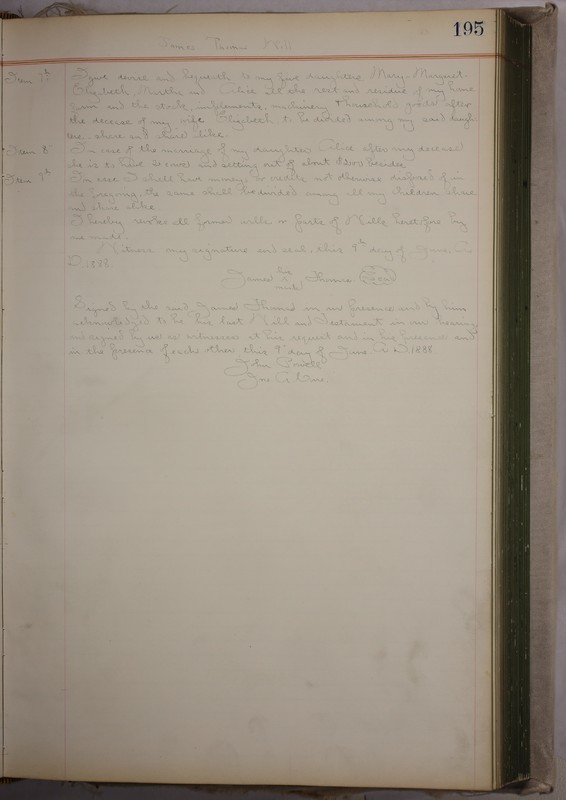 195
James Thomas Will
Item 7th I give devise and bequeath to my five daughters Mary, Margaret,
Elizabeth, Martha and Alice all the rest and residue of my home
farm and the stock, implements, machinery & household goods after
the decease of my wife Elizabeth to be divided among my said daugh-
ters, share and share alike.
Item 8th In case of the marriage of my daughter Alice after my decease
she is to have a cow and setting out of about
Item 9th In case I shall have money or credits not otherwise disposed of in
the foregoing, the same shall be divided among all my children share
and share alike.
I hereby revoke all former wills or parts of Wills heretofore by
me made.
Witness my signature and seal, this 9th day of June A.
D. 1888
James his x mark Thomas (Seal)
Signed by the said James Thomas in our presence and by him
acknowledged to be his last Will and Testament in our hearing
and signed by us as witnesses at his request and in his presence and
in the presence of each other this 9th day of June A.D. 1888
John Powell
Jno. A.